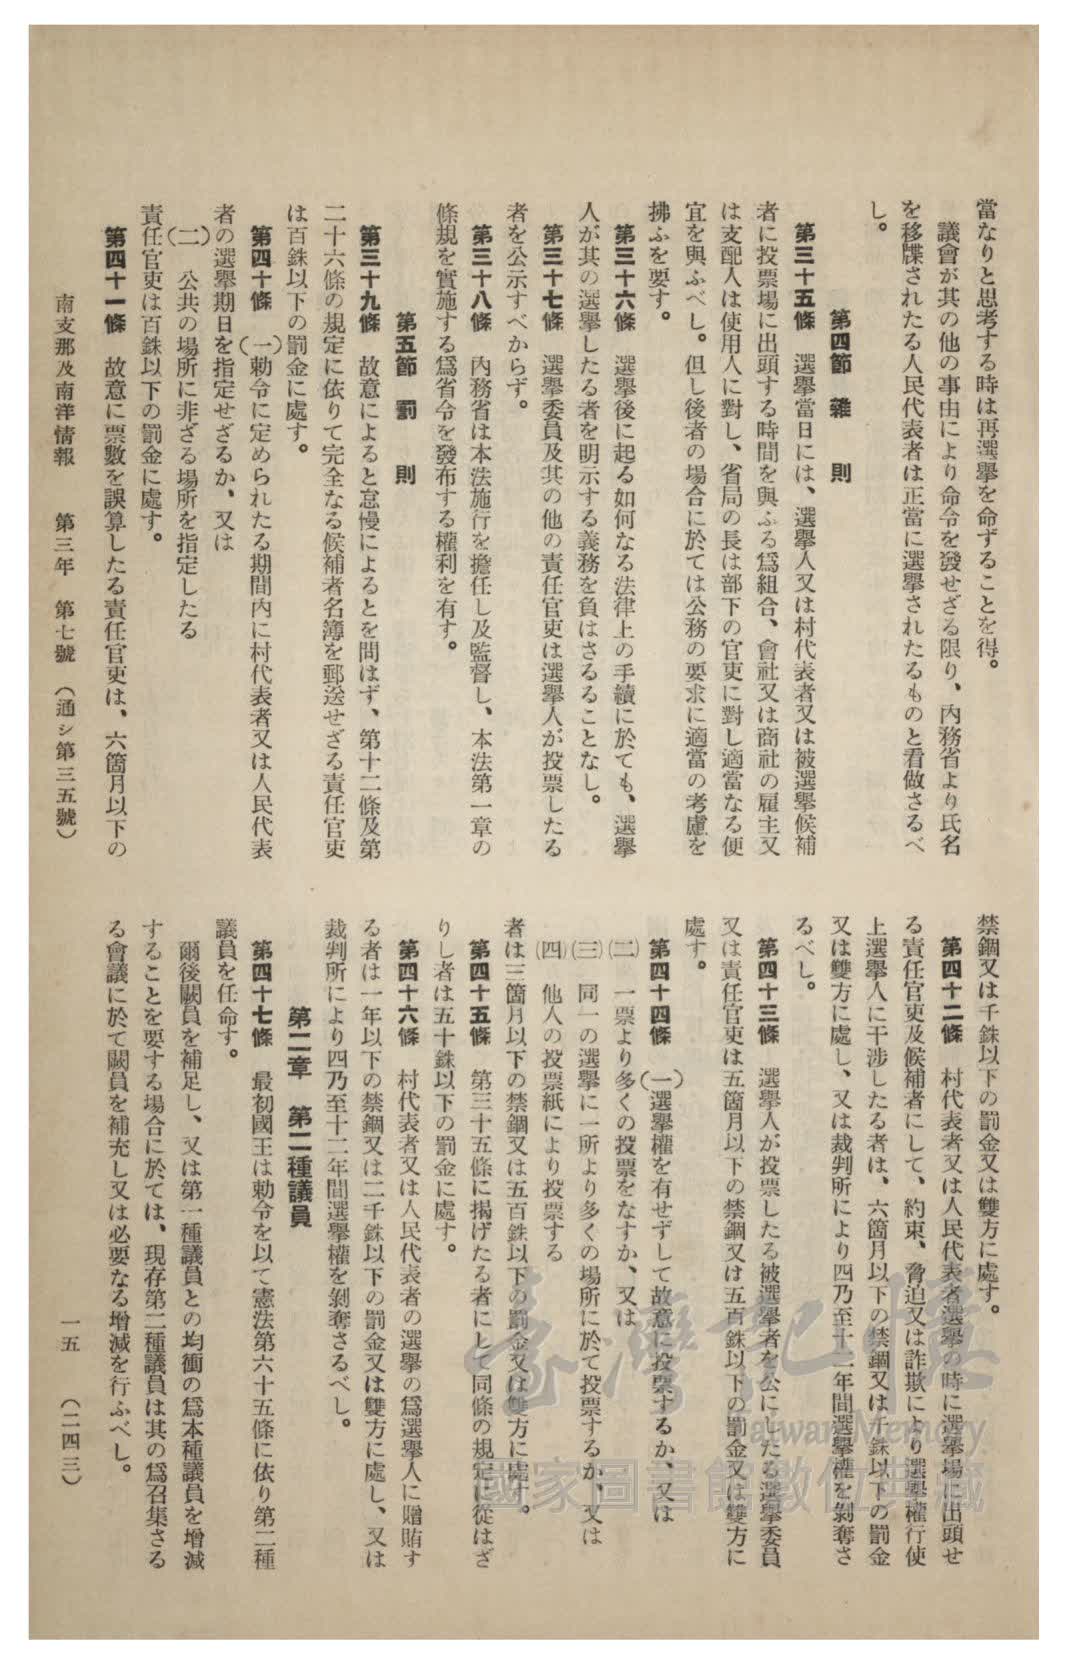 當なりと思考する時は再選擧を命ずることを得。
議會が其の他の事由により命令を發せざる限り、內務省より氏名
を移牒されたる人民代表者は正當に選擧されたるものと看做さるべ
し。
第四節　雜　則
第三十五條　選擧當日には、選擧人又は村代表者又は被選擧候補
者に投票場に出頭する時間を與ふる爲組合、會社又は商社の雇主又
は支配人は使用人に對し、省局の長は部下の官吏に對し適當なる便
宜を與ふべし。但し後者の場合に於ては公務の要求に適當の考慮を
拂ふを要す。
第三十六條　選擧後に起る如何なる法律上の手續に於ても、選擧
人が其の選擧したる者を明示する義務を負はさるることなし。
第三十七條　選擧委員及其の他の責任官吏は選擧人が投票したる
者を公示すべからず。
第三十八條　內務省は本法施行を擔任し及監督し、本法第一章の
條規を實施する爲省令を發布する權利を有す。
第五節　罰　則
第三十九條　故意によると怠慢によるとを問はず、第十二條及第
二十六條の規定に依りて完全なる候補者名簿を郵送せざる責任官吏
は百銖以下の罰金に處す。
第四十條　(一)勅令に定められたる期間內に村代表者又は人民代表
者の選擧期日を指定せざるか、又は
(二)　公共の場所に非ざる場所を指定したる
責任官吏は百銖以下の罰金に處す。
第四十一條　故意に票數を誤算したる責任官吏は、六箇月以下の
禁錮又は千銖以下の罰金又は雙方に處す。
第四十二條　村代表者又は人民代表者選擧の時に選擧場に出頭せ
る責任官吏及候補者にして、約束、脅迫又は詐欺により選擧權行使
上選擧人に干涉したる者は、六箇月以下の禁錮又は千銖以下の罰金
又は雙方に處し、又は裁判所により四乃至十二年間選擧權を剝奪さ
るべし。
第四十三條　選擧人が投票したる被選擧者を公にしたる選擧委員
又は責任官吏は五箇月以下の禁錮又は五百銖以下の罰金又は雙方に
處す。
第四十四條　(一)選擧權を有せずして故意に投票するか、又は
(二)　一票より多くの投票をなすか、又は
(三)　同一の選擧に一所より多くの場所に於て投票するか、又は
(四)　他人の投票紙により投票する
者は三箇月以下の禁錮又は五百銖以下の罰金又は雙方に處す。
第四十五條　第三十五條に揭げたる者にして同條の規定に從はざ
りし者は五十銖以下の罰金に處す。
第四十六條　村代表者又は人民代表者の選擧の爲選擧人に贈賄す
る者は一年以下の禁錮又は二千銖以下の罰金又は雙方に處し、又は
裁判所により四乃至十二年間選擧權を剝奪さるべし。
第二章　第二種議員
第四十七條　最初國王は勅令を以て憲法第六十五條に依り第二種
議員を任命す。
爾後闕員を補足し、又は第一種議員との均衝の爲本種議員を增減
することを要する場合に於ては、現存第二種議員は其の爲召集さる
る會議に於て闕員を補充し又は必要なる增減を行ふべし。
南支那及南洋情報　第三年　第七號　(通シ第三五號)
一五　(二四三)
臺灣記憶
Taiwan Memory
國家圖書館數位典藏